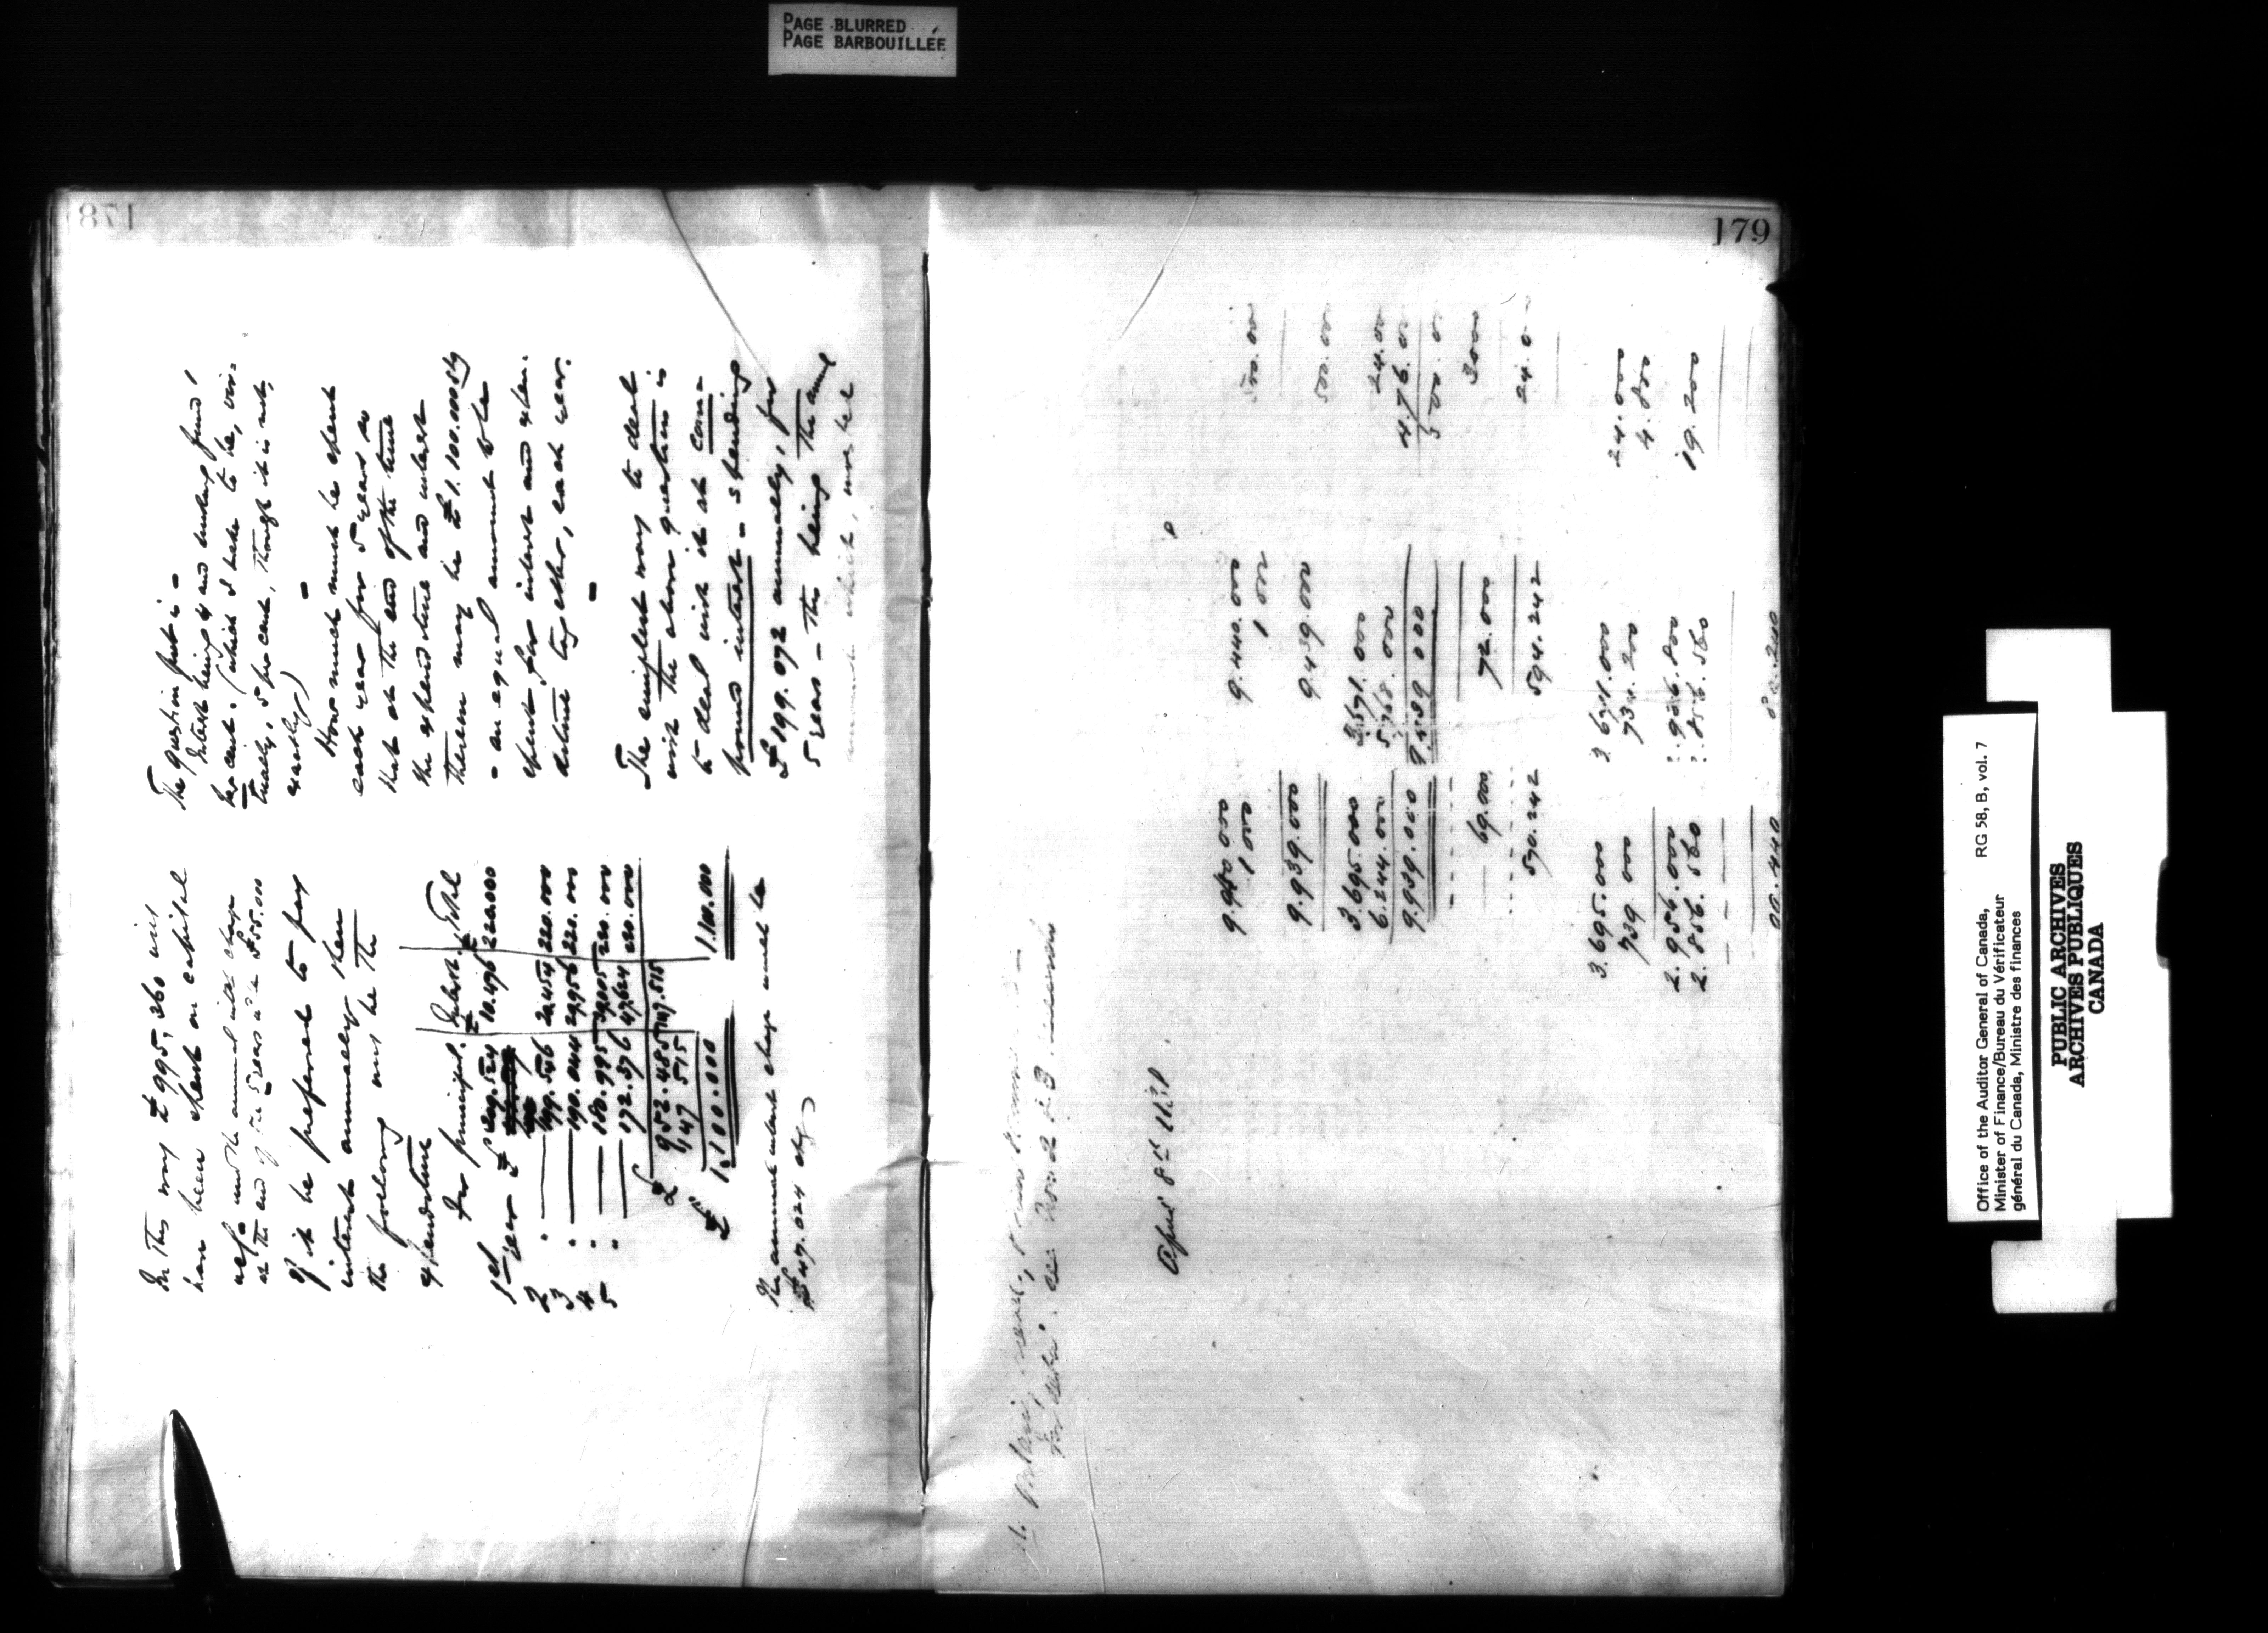 PAGE BLURRED
PAGE BARBOUILLÉE
178
The question put is -
Interest being 4 and sinking fund 1
per cent. (which I take to be, vir=
tually, 5 per cent, though it is not,
exactly)
How much must be spent
each year for 5 years so
that at the end of the time
the expenditure and interest
thereon may be £1.100.000 stg
- an equal amount to be
spent, for interest and expen-
diture together, each year.
The simplest way to deal
with the above question is
to deal with it at com=
pound interest - spending
£199.072 annually, for
5 years - this being the annual
amount which, must be
In this way £995,360 will
have been spent on capital
and the annual interest charge
at the end of the 5 years will be £55.000
If it be preferred to pay
interest annually then
the following will be the
expenditure
For principal. Interest. Total
1st year £ 209.524 £ 10.476 £ 220.000
2 " 199.546 20.454 220.000
3 " 190.044 29.956 220.000
4 " 180.995 39.005 220.000
5 " 172.376 47.624 220.000
£ 952.485 147.515
147.515
£ 1.100.000 1.100.000
The annual interest charge would be
£47.624 stg
179
April 8th
9.940.000 9.440.000 500.00
1 000 1 000
9.939.000 9.439.000 500.00
3.695.000 3.671.000 24.00
6.244.000 5.768.000 4.76.00
9.939.000 9.439 000 5 00.0
69.000 72.000 3000
590.242 594.242 24.0
3.695.000 3.671.000 24.000
739 000 734.200 4.800
2.956.000 2.936.800 19.200
2.856.560 2.856.560
Office of the Auditor General of Canada, RG 58, B, vol. 7
Minister of Finance/Bureau du Vérificateur
général du Canada, Ministre des finances
PUBLIC ARCHIVES
ARCHIVES PUBLIQUES
CANADA